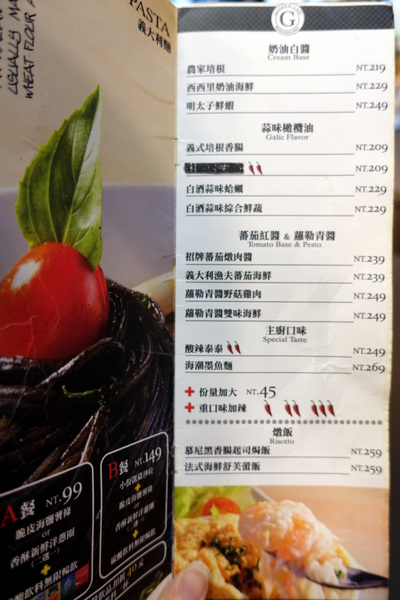 USUALLY MA
WHEAT FLOUR A
PASTA
義大利麵
A餐 NT.99
脆皮海鹽薯條
or
香酥新鮮洋蔥圈
(二選一)
碳酸飲料無限暢飲
B餐 NT.149
小份凱薩沙拉
脆皮海鹽薯條
or
香酥新鮮洋蔥圈
碳酸飲料無限暢飲
G
奶油白醬
Cream Base
農家培根 NT.219
西西里奶油海鮮 NT.229
明太子鮮蝦 NT.249
蒜味橄欖油
Galic Flavor
義式培根香腸 NT.209
NT.209
白酒蒜味蛤蠣 NT.229
白酒蒜味綜合鮮蔬 NT.229
蕃茄紅醬 & 蘿勒青醬
Tomato Base & Pesto
招牌蕃茄燉肉醬 NT.239
義大利漁夫蕃茄海鮮 NT.239
蘿勒青醬野菇雞肉 NT.249
蘿勒青醬雙味海鮮 NT.249
主廚口味
Special Taste
酸辣泰泰 NT.249
海潮墨魚麵 NT.269
+ 份量加大 NT.45
+ 重口味加辣
燉飯
Risotto
慕尼黑香腸起司焗飯 NT.259
法式海鮮舒芙蕾飯 NT.259